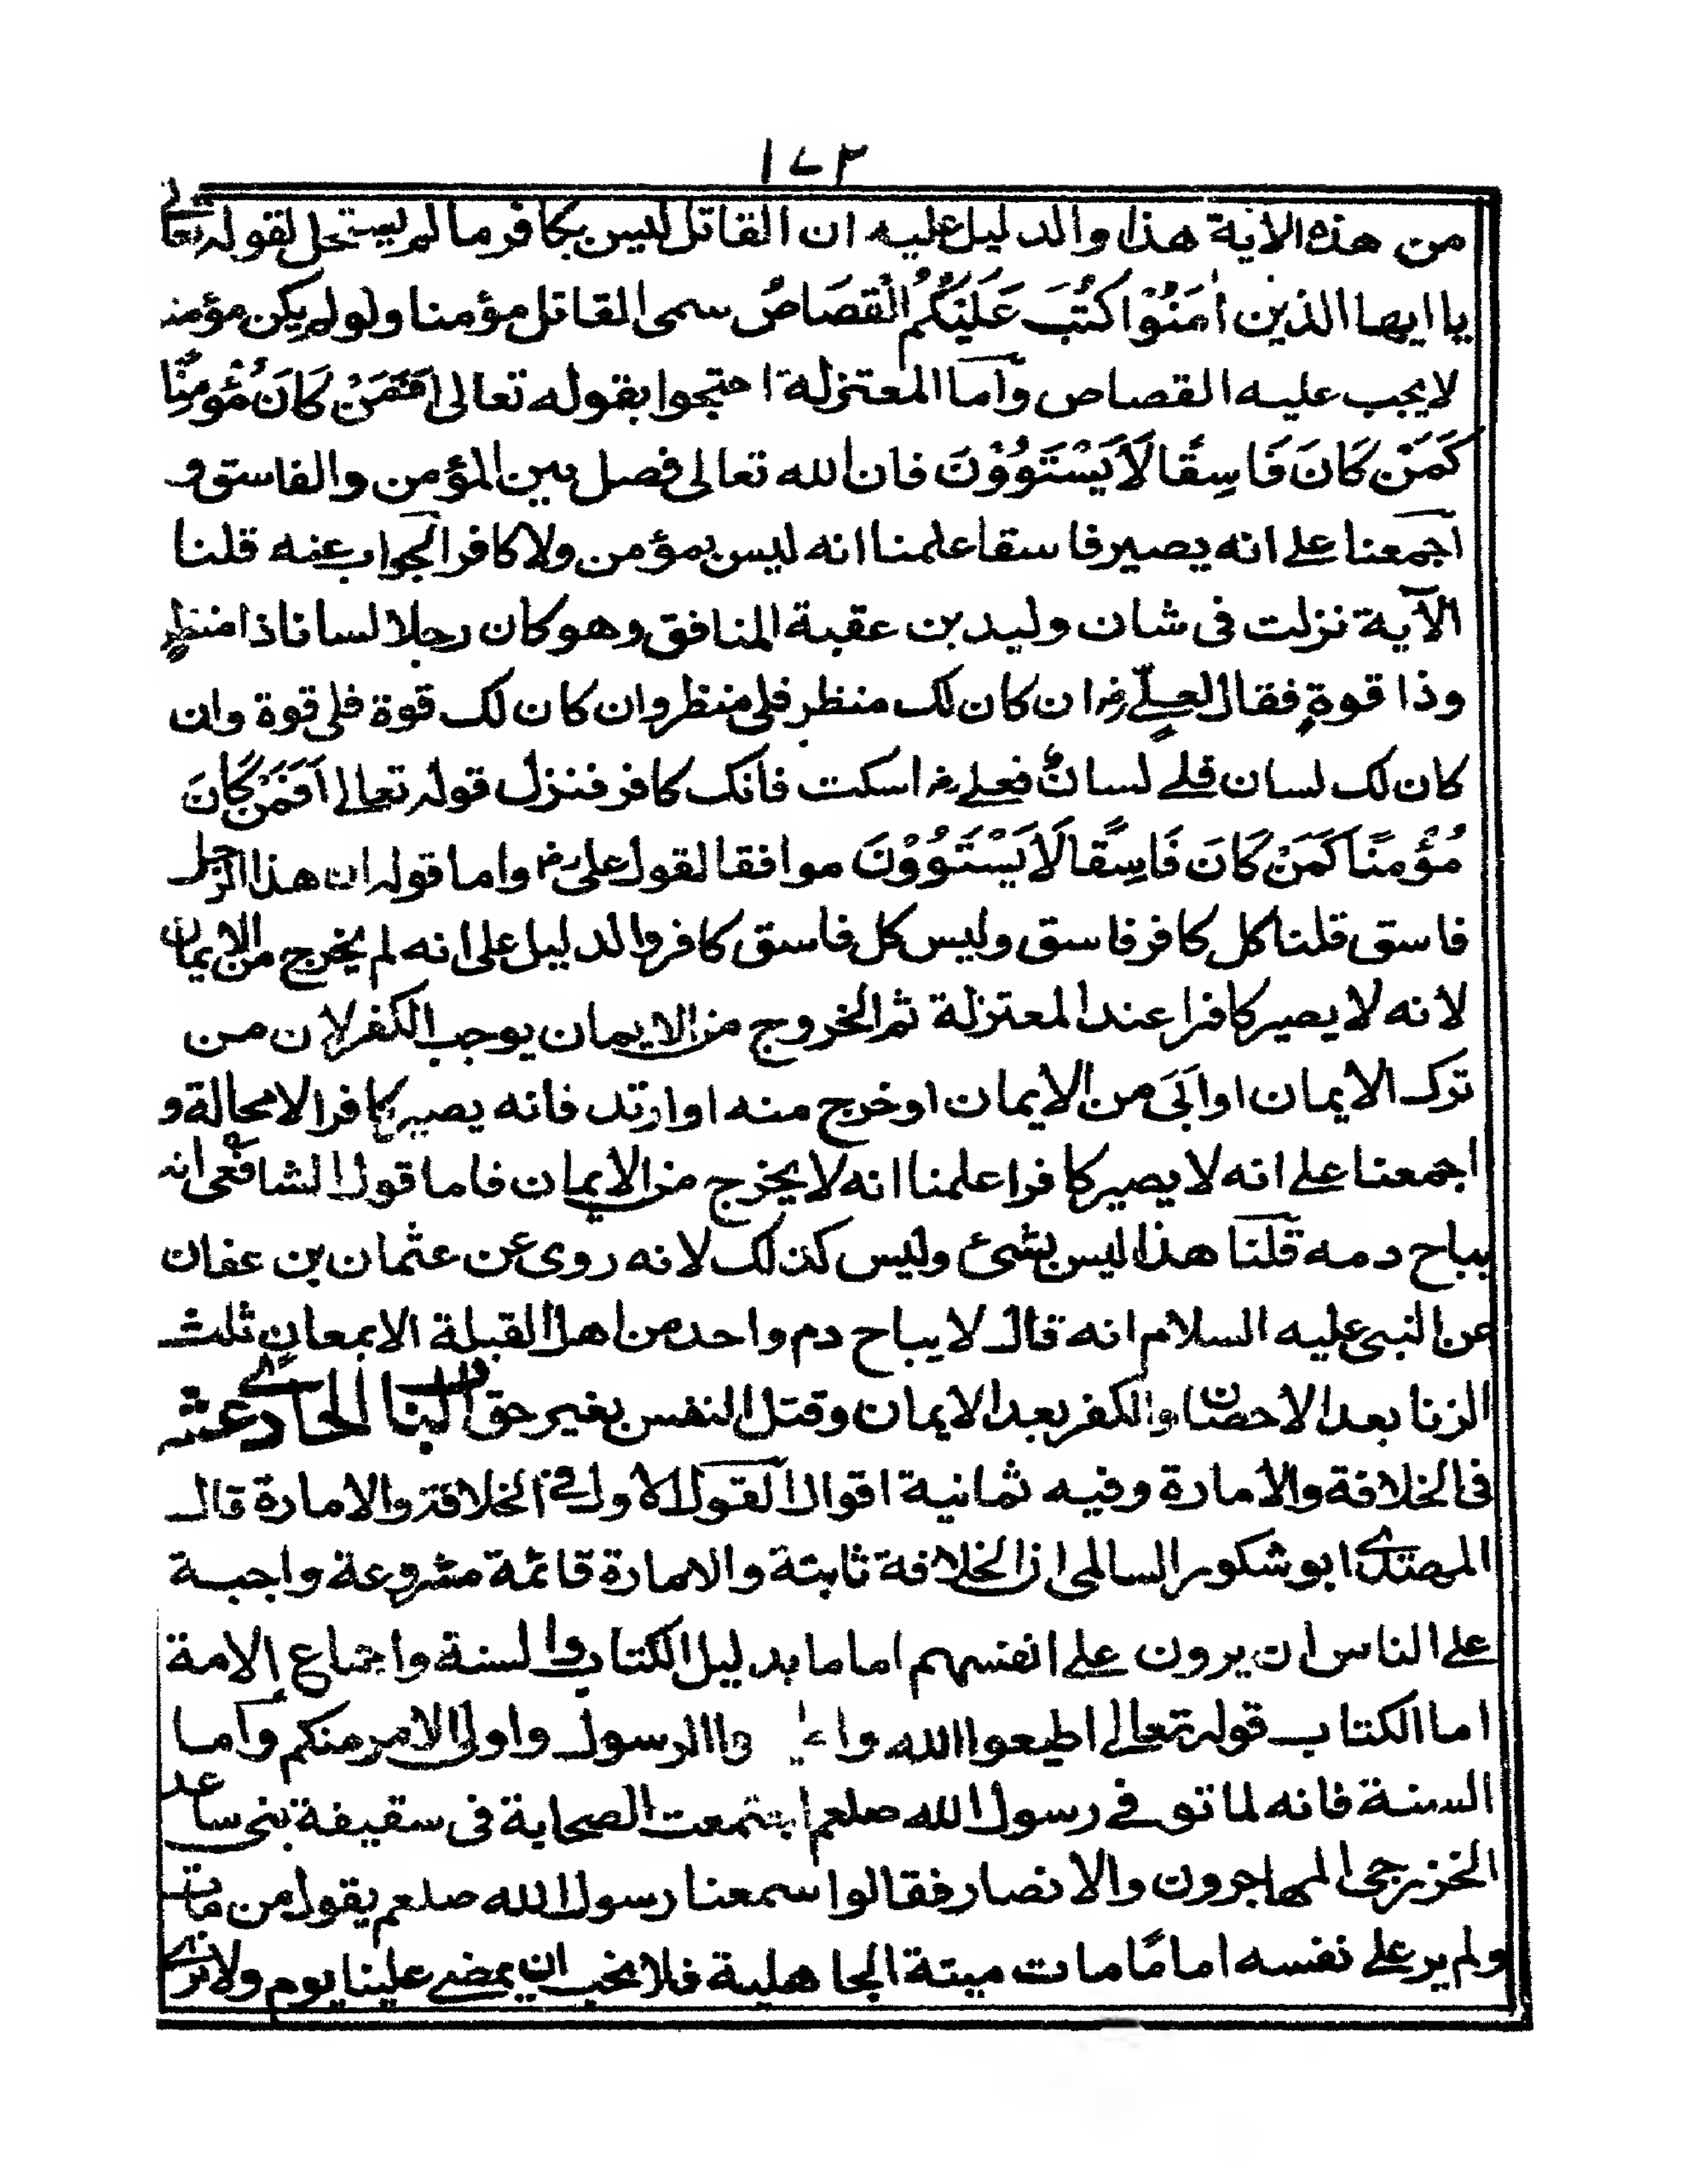 ١٧٣
من هذه الاية هذا والدليل عليه ان القاتل ليس بكافر ما لم يستحل لقوله تعالى
يا ايها الذين اٰمَنُوْا كُتُبَ عَلَيْكُمُ الْقِصَاصُ سمى القاتل مؤمنا ولو لم يكن مؤمنا
لا يجب عليه القصاص وآما المعتزلة احتجوا بقوله تعالى اَفَمَنْ كَانَ مُؤْمِنًا
كَمَنْ كَانَ فَاسِقًا لَا يَسْتَوُوْنَ فان الله تعالى فصل بين المؤمن والفاسق و
اجمعنا على انه يصير فاسقا علمنا انه ليس بمؤمن ولا كافر الجواب عنه قلنا
الآية نزلت فى شان وليد بن عقبة المنافق وهو كان رجلا لسانا ذا منظر
وذا قوة فقال لعلى رض ان كان لك منظر فلى منظر وان كان لك قوة فلى قوة وان
كان لك لسان فلى لسان فعلى رض اسكت فانك كافر فنزل قوله تعالى اَفَمَنْ كَانَ
مُؤْمِنًا كَمَنْ كَانَ فَاسِقًا لَا يَسْتَوُوْنَ موافقا لقول على رض واما قوله ان هذا الرجل
فاسق قلنا كل كافر فاسق وليس كل فاسق كافر والدليل على انه لم يخرج من الايمان
لانه لا يصير كافرا عند المعتزلة ثم الخروج من الايمان يوجب الكفر لان من
ترك الايمان او اَبَى من الايمان او خرج منه او ارتد فانه يصير كافرا لا محالة و
اجمعنا على انه لا يصير كافرا علمنا انه لا يخرج من الايمان فاما قول الشافعى انه
يباح دمه قلنا هذا ليس بشئ وليس كذلك لانه روى عن عثمان بن عفان
عن النبى عليه السلام انه قال لا يباح دم واحد من اهل القبلة الا بمعان ثلث
الزنا بعد الاحصان والكفر بعد الايمان وقتل النفس بغير حق الباب الحادى عشر
فى الخلافة والامارة وفيه ثمانية اقوال القول الاول فى الخلافة والامارة قال
المهتدى ابو شكور السالمى ان الخلافة ثابتة والامارة قائمة مشروعة واجبة
على الناس ان يرون على انفسهم اماما بدليل الكتاب والسنة واجماع الامة
اما الكتاب قوله تعالى اطيعوا الله وا الرسول واولى الامر منكم وآما
السنة فانه لما توفى رسول الله صلعم اجتمعت الصحابة فى سقيفة بنى ساعد
الخزرجى المهاجرون والانصار فقالوا سمعنا رسول الله صلعم يقول من مات
ولم ير على نفسه امامًا مات ميتة الجاهلية فلا نحب ان يمضى علينا يوم ولا نرى